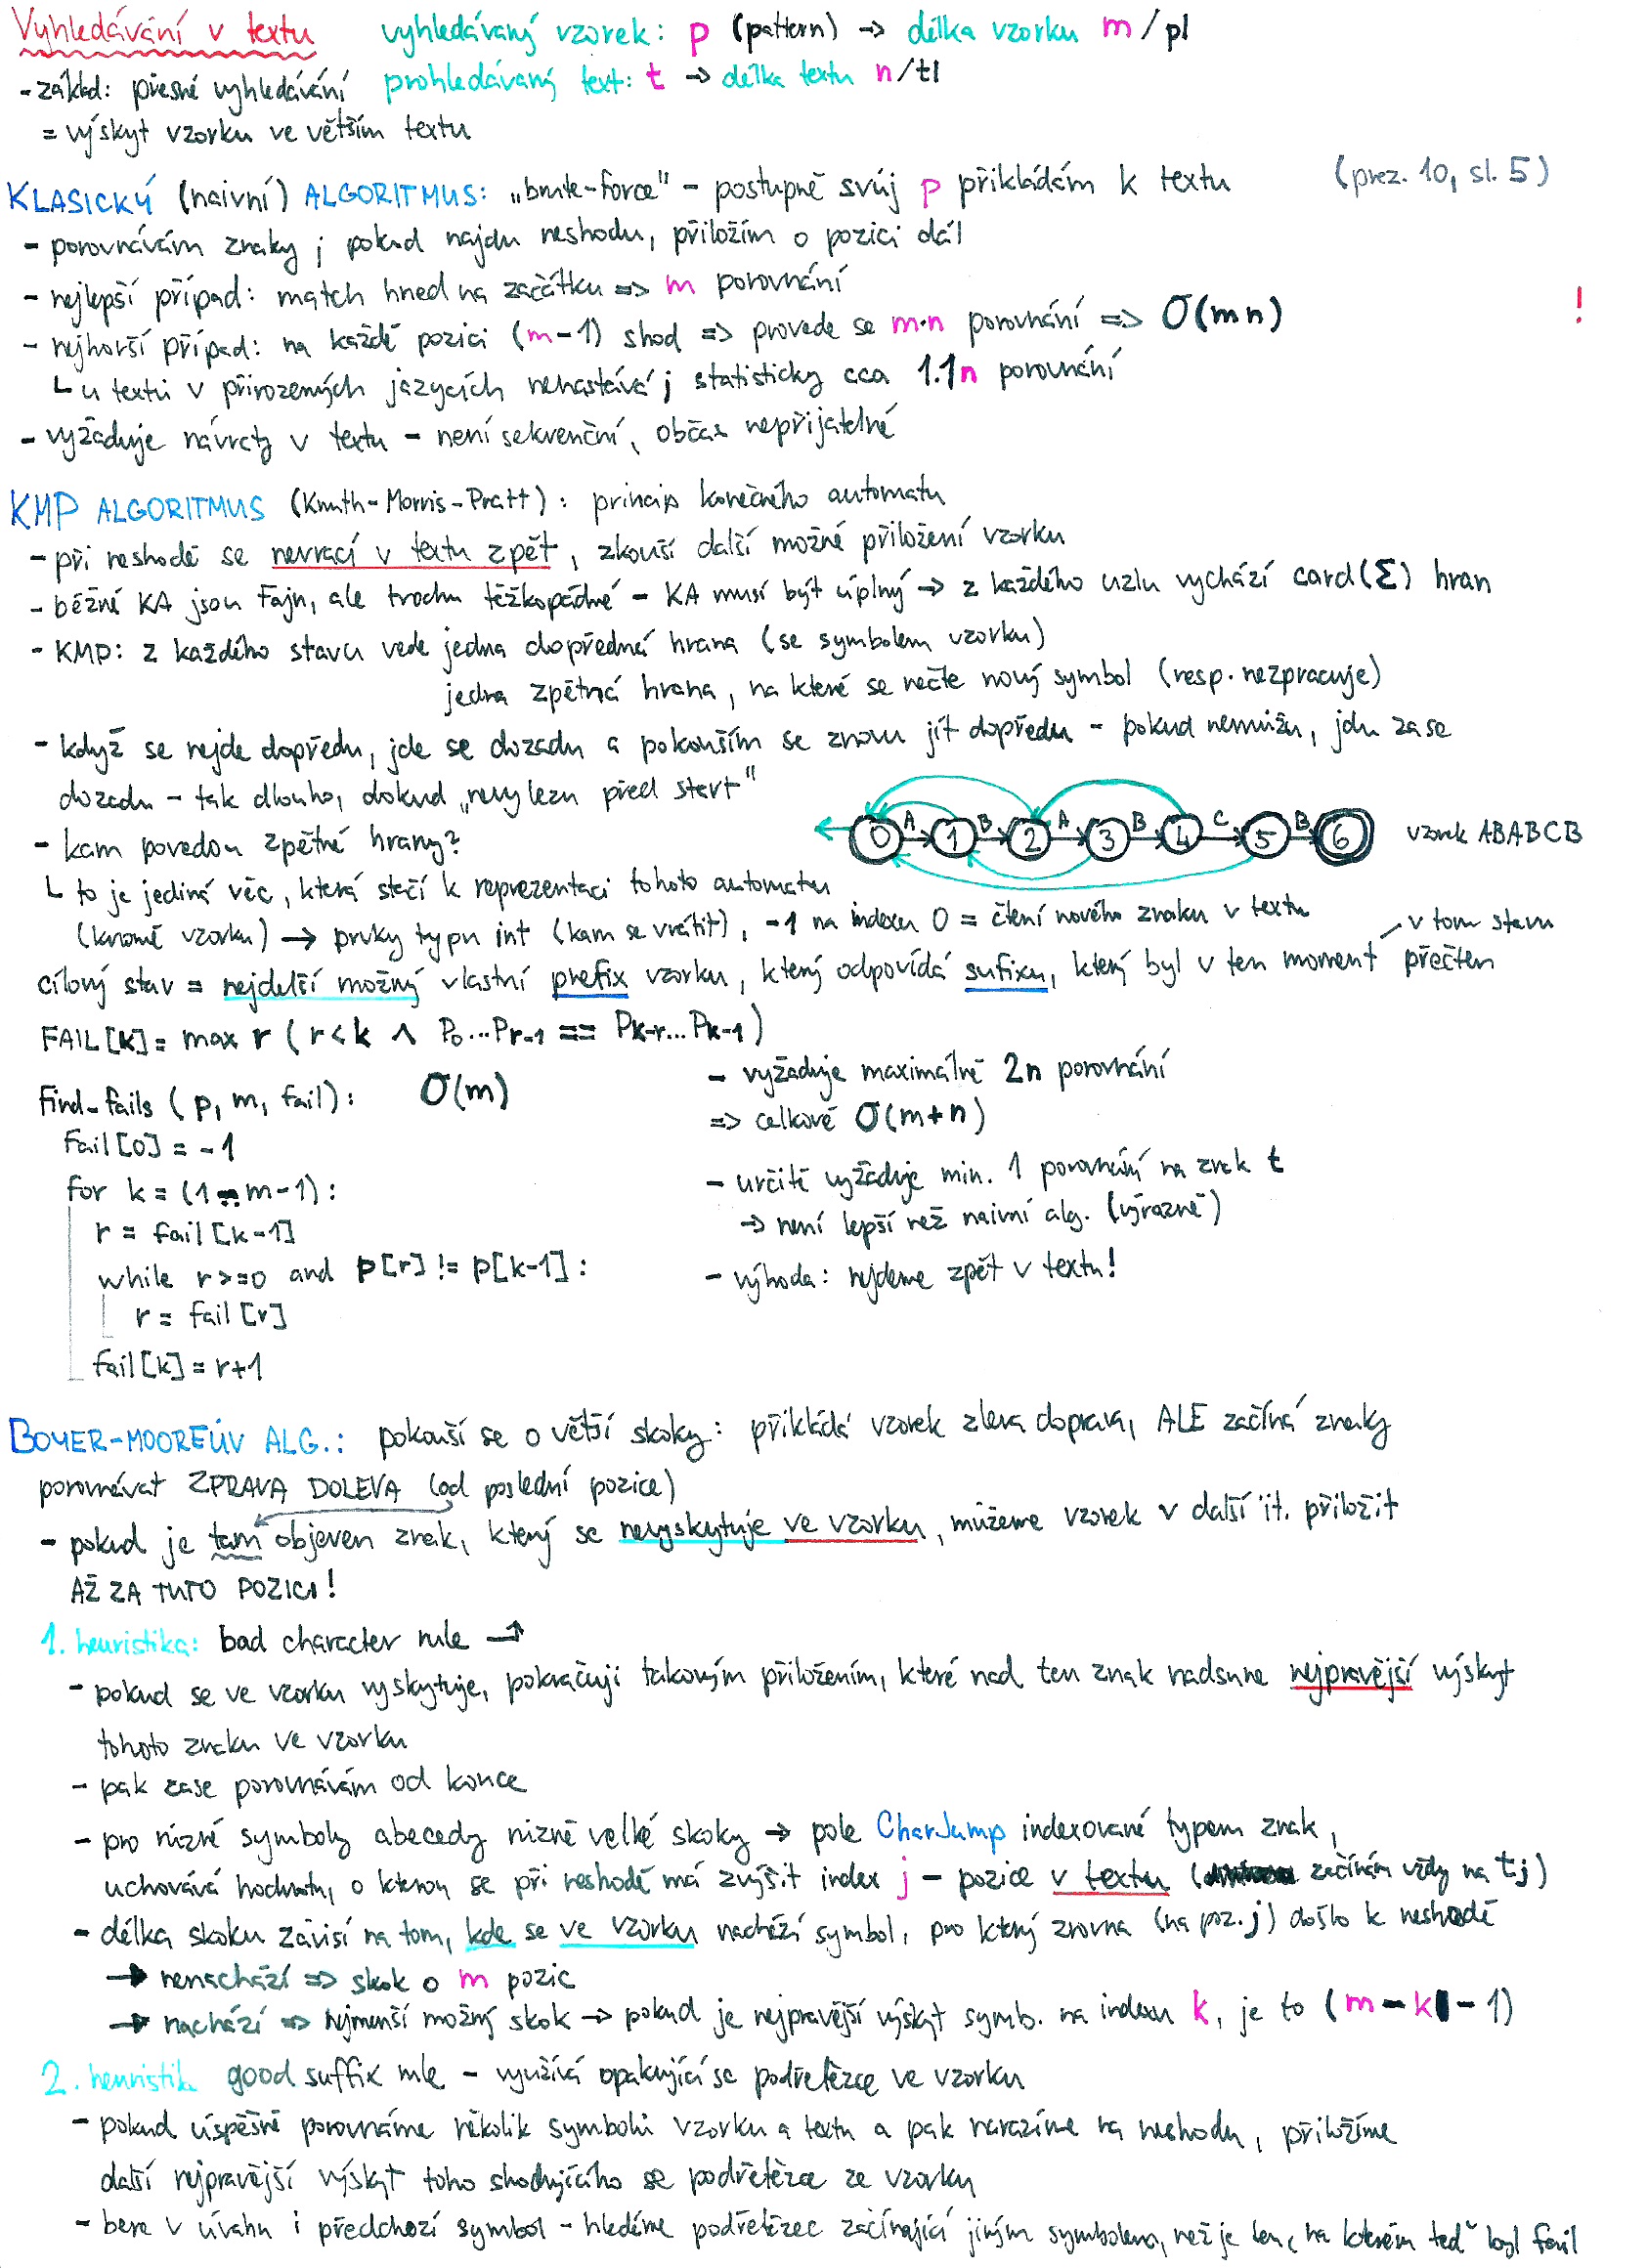 Vyhledávání v textu
vyhledávaný vzorek: p (pattern) → délka vzorku m/pl
prohledávaný text: t → délka textu n/tl
- základ: přesné vyhledávání
= výskyt vzorku ve větším textu
KLASICKÝ (naivní) ALGORITMUS: „brute-force" - postupně svůj p přikládám k textu (prez. 10, sl. 5)
- porovnávám znaky; pokud najdu neshodu, přiložím o pozici dál
- nejlepší případ: match hned na začátku => m porovnání
- nejhorší případ: na každé pozici (m-1) shod => provede se m·n porovnání => O(mn) !
└ u textů v přirozených jazycích nenastává; statisticky cca 1.1n porovnání
- vyžaduje návraty v textu - není sekvenční, občas nepřijatelné
KMP ALGORITMUS (Knuth-Morris-Pratt): princip konečného automatu
- při neshodě se nevrací v textu zpět, zkouší další možné přiložení vzorku
- běžné KA jsou fajn, ale trochu těžkopádné - KA musí být úplný → z každého uzlu vychází card(Σ) hran
- KMP: z každého stavu vede jedna dopředná hrana (se symbolem vzorku)
jedna zpětná hrana, na které se nečte nový symbol (resp. nezpracuje)
- když se nejde dopředu, jde se dozadu a pokouším se znovu jít dopředu - pokud nemůžu, jdu zase
dozadu - tak dlouho, dokud „nevylezu před start"
0 A 1 B 2 A 3 B 4 C 5 B 6 vzorek ABABCB
- kam povedou zpětné hrany?
└ to je jediná věc, která stačí k reprezentaci tohoto automatu
(kromě vzorku) → prvky typu int (kam se vrátit), -1 na indexu 0 = čtení nového znaku v textu
v tom stavu
cílový stav = nejdelší možný vlastní prefix vzorku, který odpovídá sufixu, který byl v ten moment přečten
FAIL[k] = max r (r<k ∧ P0...Pr-1 == Pk-r...Pk-1)
find_fails (p, m, fail): O(m)
fail[0] = -1
for k = (1..m-1):
r = fail[k-1]
while r >=0 and p[r] != p[k-1]:
r = fail[r]
fail[k] = r+1
- vyžaduje maximálně 2n porovnání
=> celkově O(m+n)
- určitě vyžaduje min. 1 porovnání na znak t
→ není lepší než naivní alg. (výrazně)
- výhoda: nejdeme zpět v textu!
BOYER-MOOREŮV ALG.: pokouší se o větší skoky: přikládá vzorek zleva doprava, ALE začíná znaky
porovnávat ZPRAVA DOLEVA (od poslední pozice)
- pokud je tam objeven znak, který se nevyskytuje ve vzorku, můžeme vzorek v další it. přiložit
AŽ ZA TUTO POZICI!
1. heuristika: bad character rule →
- pokud se ve vzorku vyskytuje, pokračuji takovým přiložením, které nad ten znak nadsune nejpravější výskyt
tohoto znaku ve vzorku
- pak zase porovnávám od konce
- pro různé symboly abecedy různě velké skoky → pole CharJump indexované typem znak,
uchovává hodnotu, o kterou se při neshodě má zvýšit index j - pozice v textu (začínám vždy na tj)
- délka skoku závisí na tom, kde se ve vzorku nachází symbol, pro který zrovna (na poz. j) došlo k neshodě
→ nenachází => skok o m pozic
→ nachází => nejmenší možný skok → pokud je nejpravější výskyt symb. na indexu k, je to (m-k-1)
2. heuristik. good suffix rule - využívá opakující se podřetězce ve vzorku
- pokud úspěšně porovnáme několik symbolů vzorku a textu a pak narazíme na neshodu, přiložíme
další nejpravější výskyt toho shodujícího se podřetězce ze vzorku
- bere v úvahu i předchozí symbol - hledáme podřetězec začínající jiným symbolem, než je ten, na kterém teď byl fail